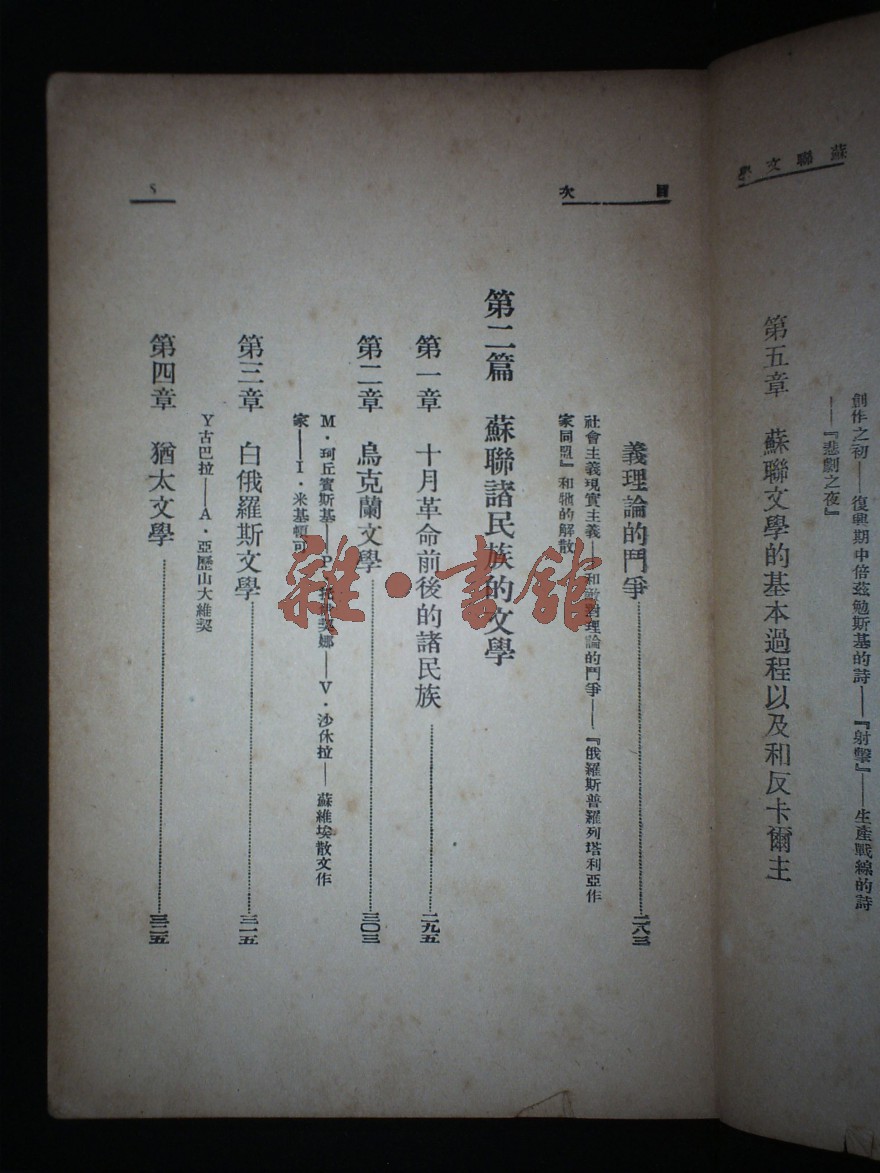 蘇聯文學
創作之初——復興期中倍茲勉斯基的詩——『射擊』——生產戰線的詩
——『悲劇之夜』
第五章 蘇聯文學的基本過程以及和反卡爾主
目次
義理論的鬥爭 二八三
社會主義現實主義——和敵對理論的鬥爭——『俄羅斯普羅列塔利亞作
家同盟』和牠的解散
第二篇 蘇聯諸民族的文學
第一章 十月革命前後的諸民族 二九五
第二章 烏克蘭文學 三〇三
M・珂丘賓斯基——P・契娜——V・沙休拉——蘇維埃散文作
家——I・米基頓可
第三章 白俄羅斯文學 三一五
Y古巴拉——A・亞歷山大維契
第四章 猶太文學 三二五
5
雜・書館